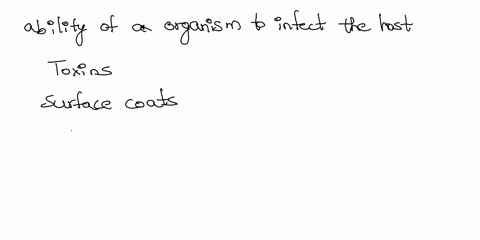 ability of a organism to infect the host
Toxins
surface coats